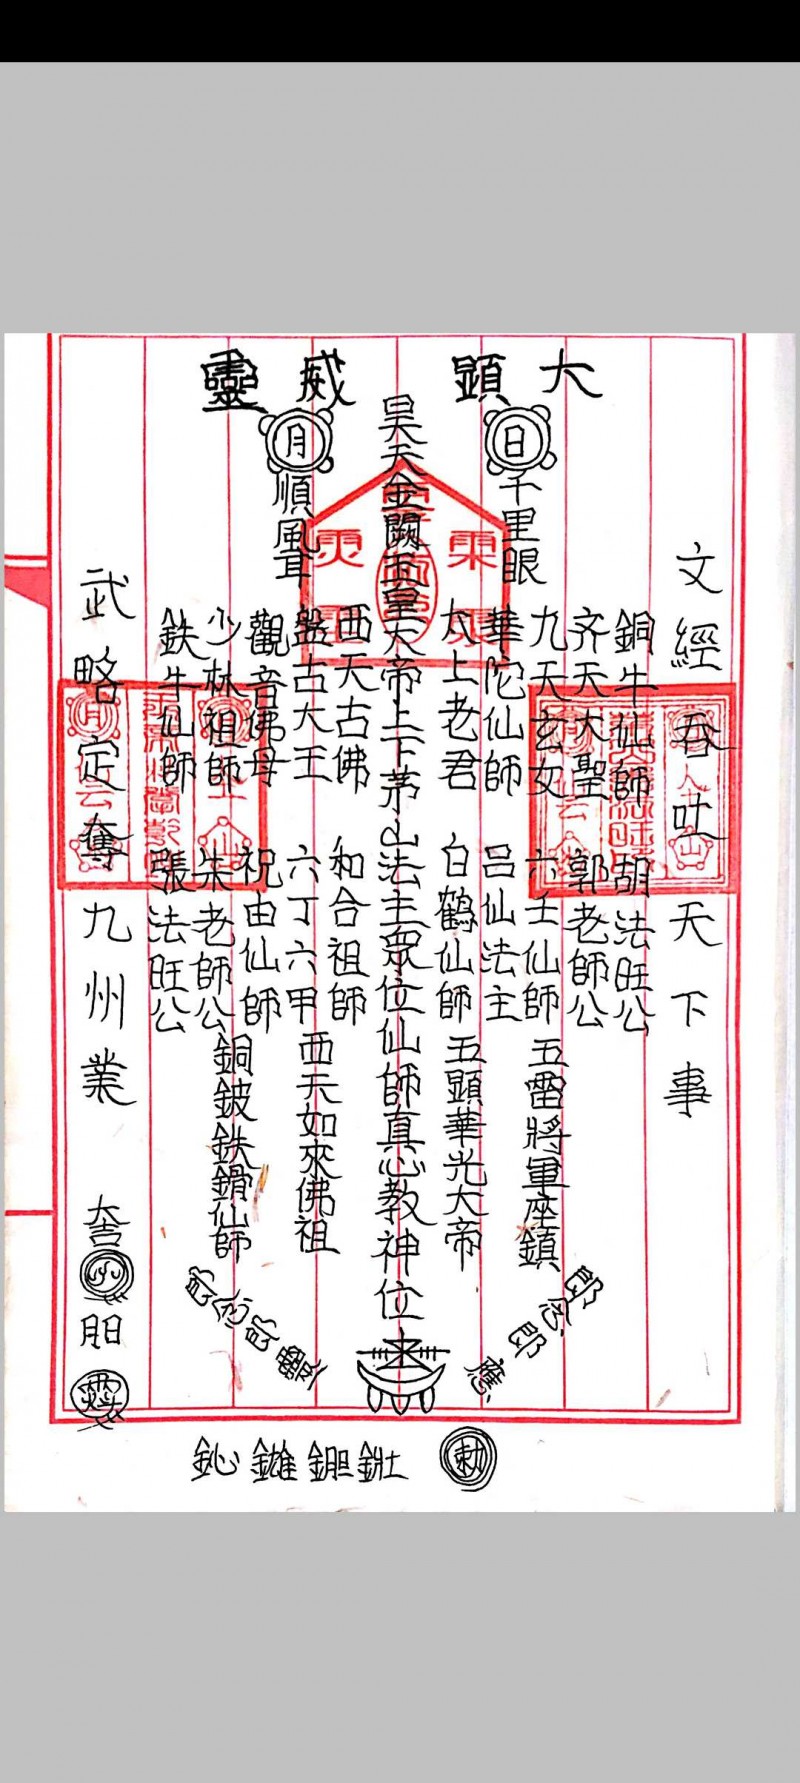 大顕威靈
日
月
千里眼
順風耳
文經吞吐天下事
銅牛仙師 胡法旺公
齐天大聖 郭老師公
九天玄女 六壬仙師 五雷將軍座鎮
華陀仙師 呂仙法主
太上老君 白鶴仙師 五顕華光大帝
昊天金闕玉皇天帝上下茅山法主眾位仙師真心教神位
西天古佛 和合祖師
盤古大王 六丁六甲 西天如來佛祖
觀音佛母 祝由仙師
少林祖師 朱老師公 銅鈹鉄鎖仙師
鉄牛仙師 張法旺公
武略定奪九州業
勅